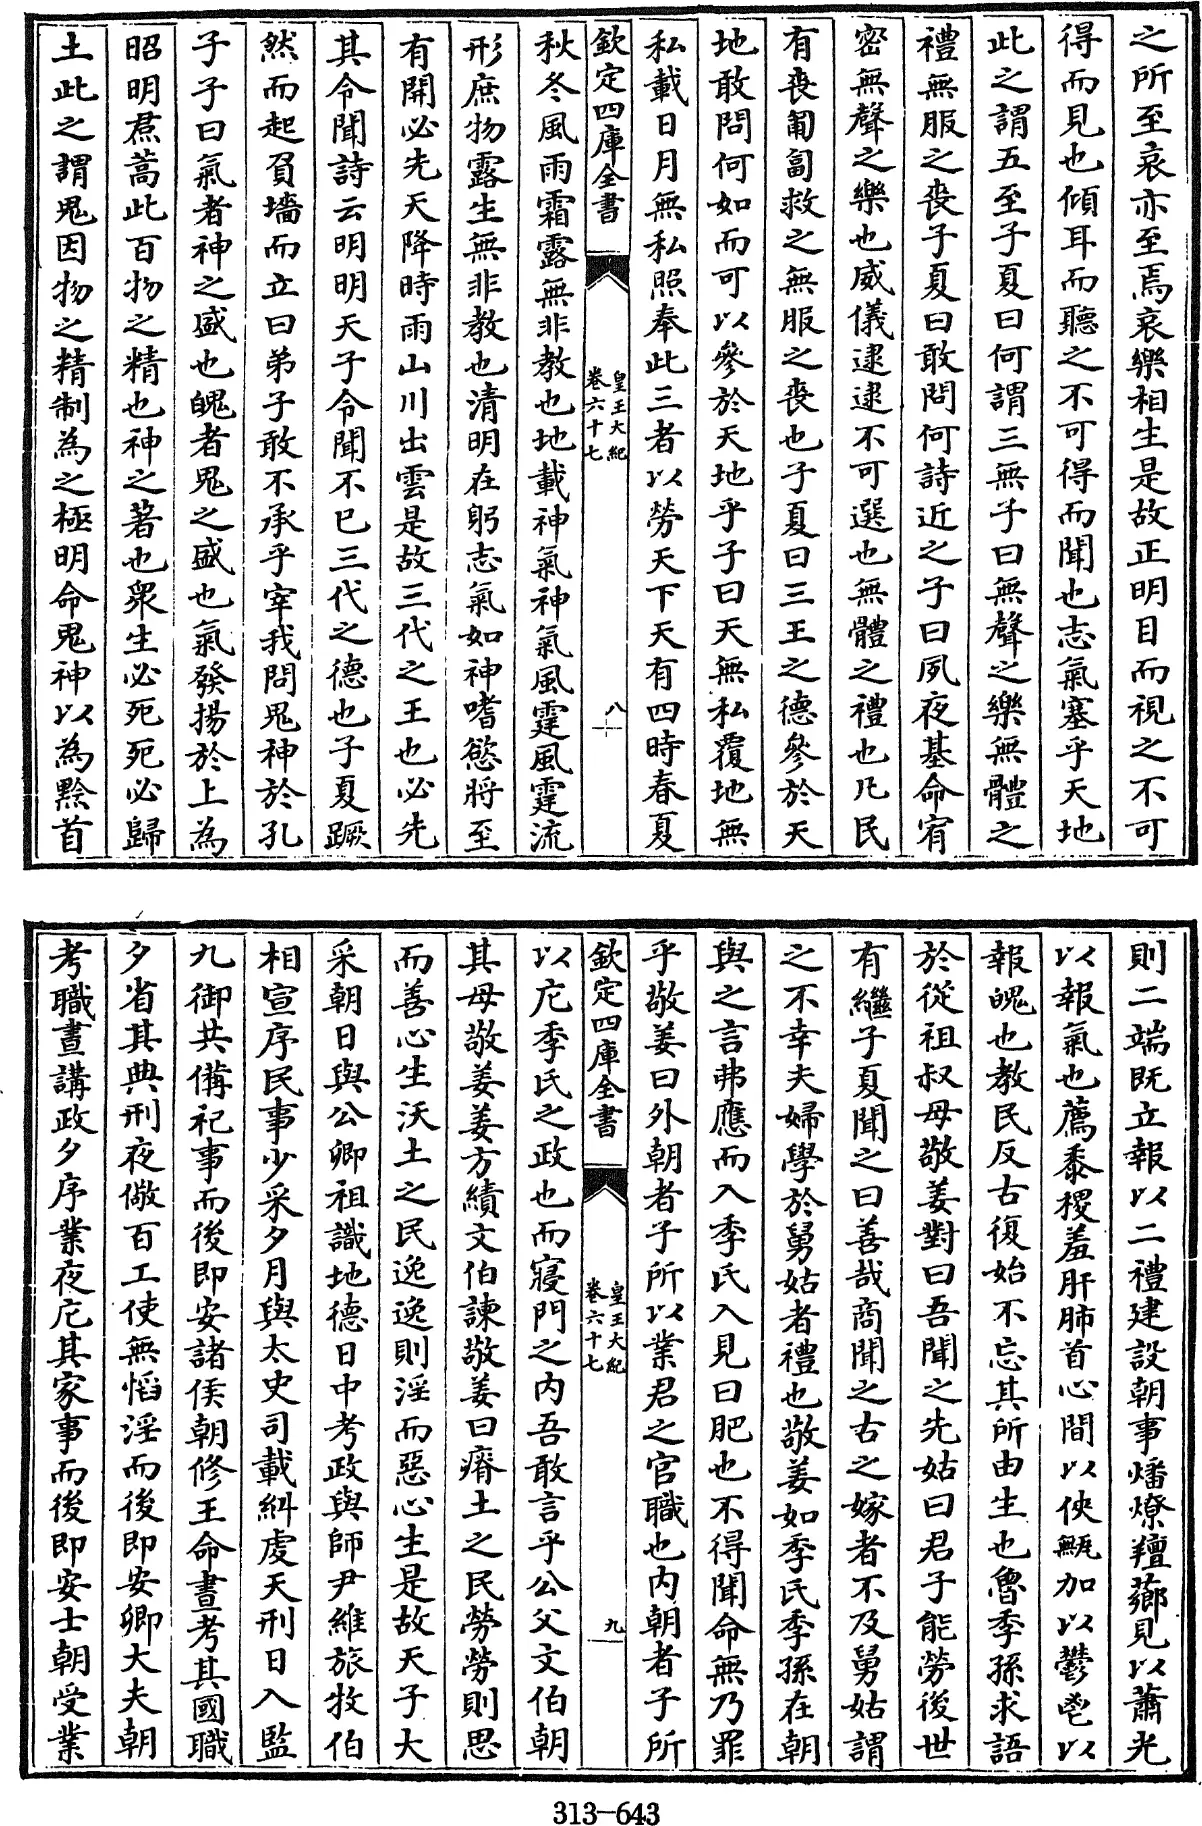 之所至哀亦至焉哀樂相生是故正明目而視之不可
得而見也傾耳而聽之不可得而聞也志氣塞乎天地
此之謂五至子夏曰何謂三無子曰無聲之樂無體之
禮無服之喪子夏曰敢問何詩近之子曰夙夜基命宥
密無聲之樂也威儀逮逮不可選也無體之禮也凡民
有喪匍匐救之無服之喪也子夏曰三王之德參於天
地敢問何如而可以參於天地乎子曰天無私覆地無
私載日月無私照奉此三者以勞天下天有四時春夏
欽定四庫全書
皇王大紀
卷六十七
八
秋冬風雨霜露無非教也地載神氣神氣風霆風霆流
形庶物露生無非教也清明在躬志氣如神嗜慾將至
有開必先天降時雨山川出雲是故三代之王也必先
其令聞詩云明明天子令聞不已三代之德也子夏蹶
然而起負墻而立曰弟子敢不承乎宰我問鬼神於孔
子子曰氣者神之盛也魄者鬼之盛也氣發揚於上為
昭明焄蒿此百物之精也神之著也衆生必死死必歸
土此之謂鬼因物之精制為之極明命鬼神以為黔首
則二端既立報以二禮建設朝事燔燎羶薌見以蕭光
以報氣也薦黍稷羞肝肺首心間以俠甒加以鬱鬯以
報魄也教民反古復始不忘其所由生也魯季孫求語
於從祖叔母敬姜對曰吾聞之先姑曰君子能勞後世
有繼子夏聞之曰善哉商聞之古之嫁者不及舅姑謂
之不幸夫婦學於舅姑者禮也敬姜如季氏季孫在朝
與之言弗應而入季氏入見曰肥也不得聞命無乃罪
乎敬姜曰外朝者子所以業君之官職也內朝者子所
欽定四庫全書
皇王大紀
卷六十七
九
以庀季氏之政也而寢門之內吾敢言乎公父文伯朝
其母敬姜姜方績文伯諫敬姜曰瘠土之民勞勞則思
而善心生沃土之民逸逸則淫而惡心生是故天子大
采朝日與公卿祖識地德日中考政與師尹維旅牧伯
相宣序民事少采夕月與太史司載糾虔天刑日入監
九御共備祀事而後即安諸侯朝修王命晝考其國職
夕省其典刑夜儆百工使無慆淫而後即安卿大夫朝
考職晝講政夕序業夜庀其家事而後即安士朝受業
313-643